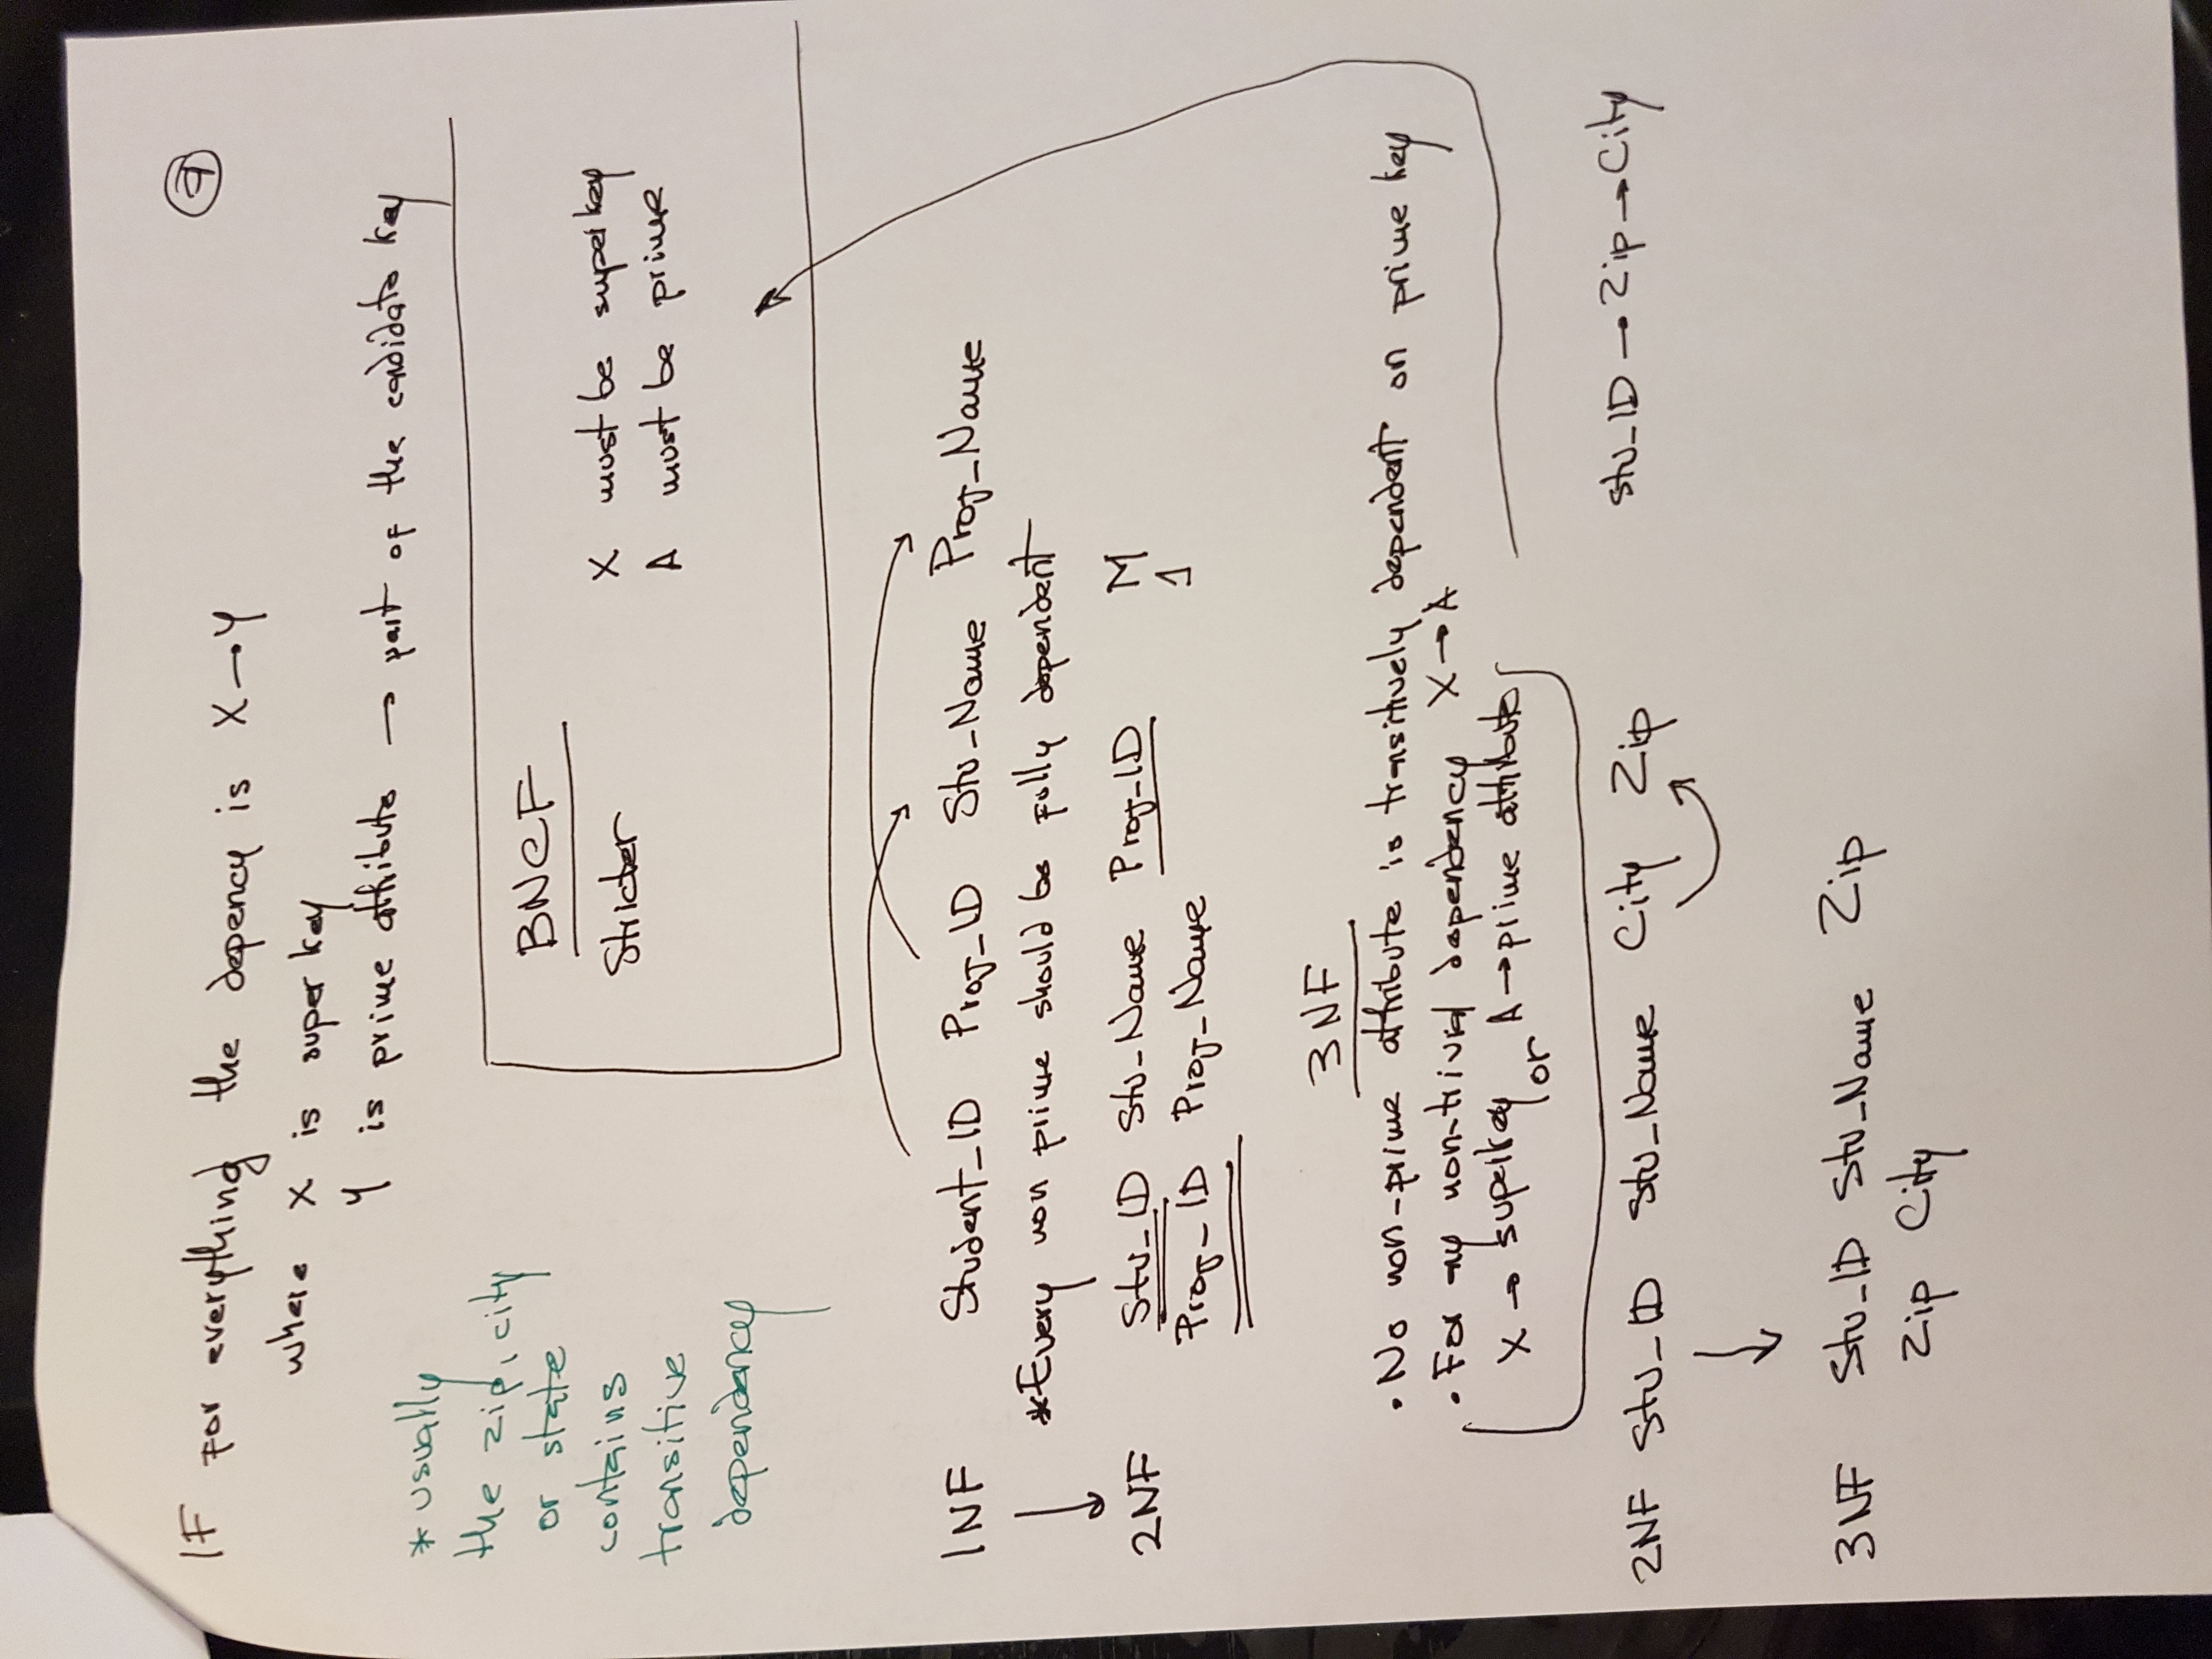 9
IF For everything the depency is X→Y
where X is super key
Y is prime attribute → part of the candidate key
* usually
the zip, city
or state
contains
transitive
dependency
BNCF
Stricter
X must be superkey
A must be prime
1NF Student_ID Proj_ID Stu_Name Proj_Name
*Every non prime should be fully dependent
2NF Stu_ID Stu_Name Proj_ID M
Proj_ID Proj_Name 1
3NF
• No non-prime attribute is transitively dependent on prime key
• For any non-trivial dependency X→A
X → superkey or A→prime attribute
2NF Stu_ID Stu_Name City Zip
Stu_ID → Zip → City
3NF Stu_ID Stu_Name Zip
Zip City